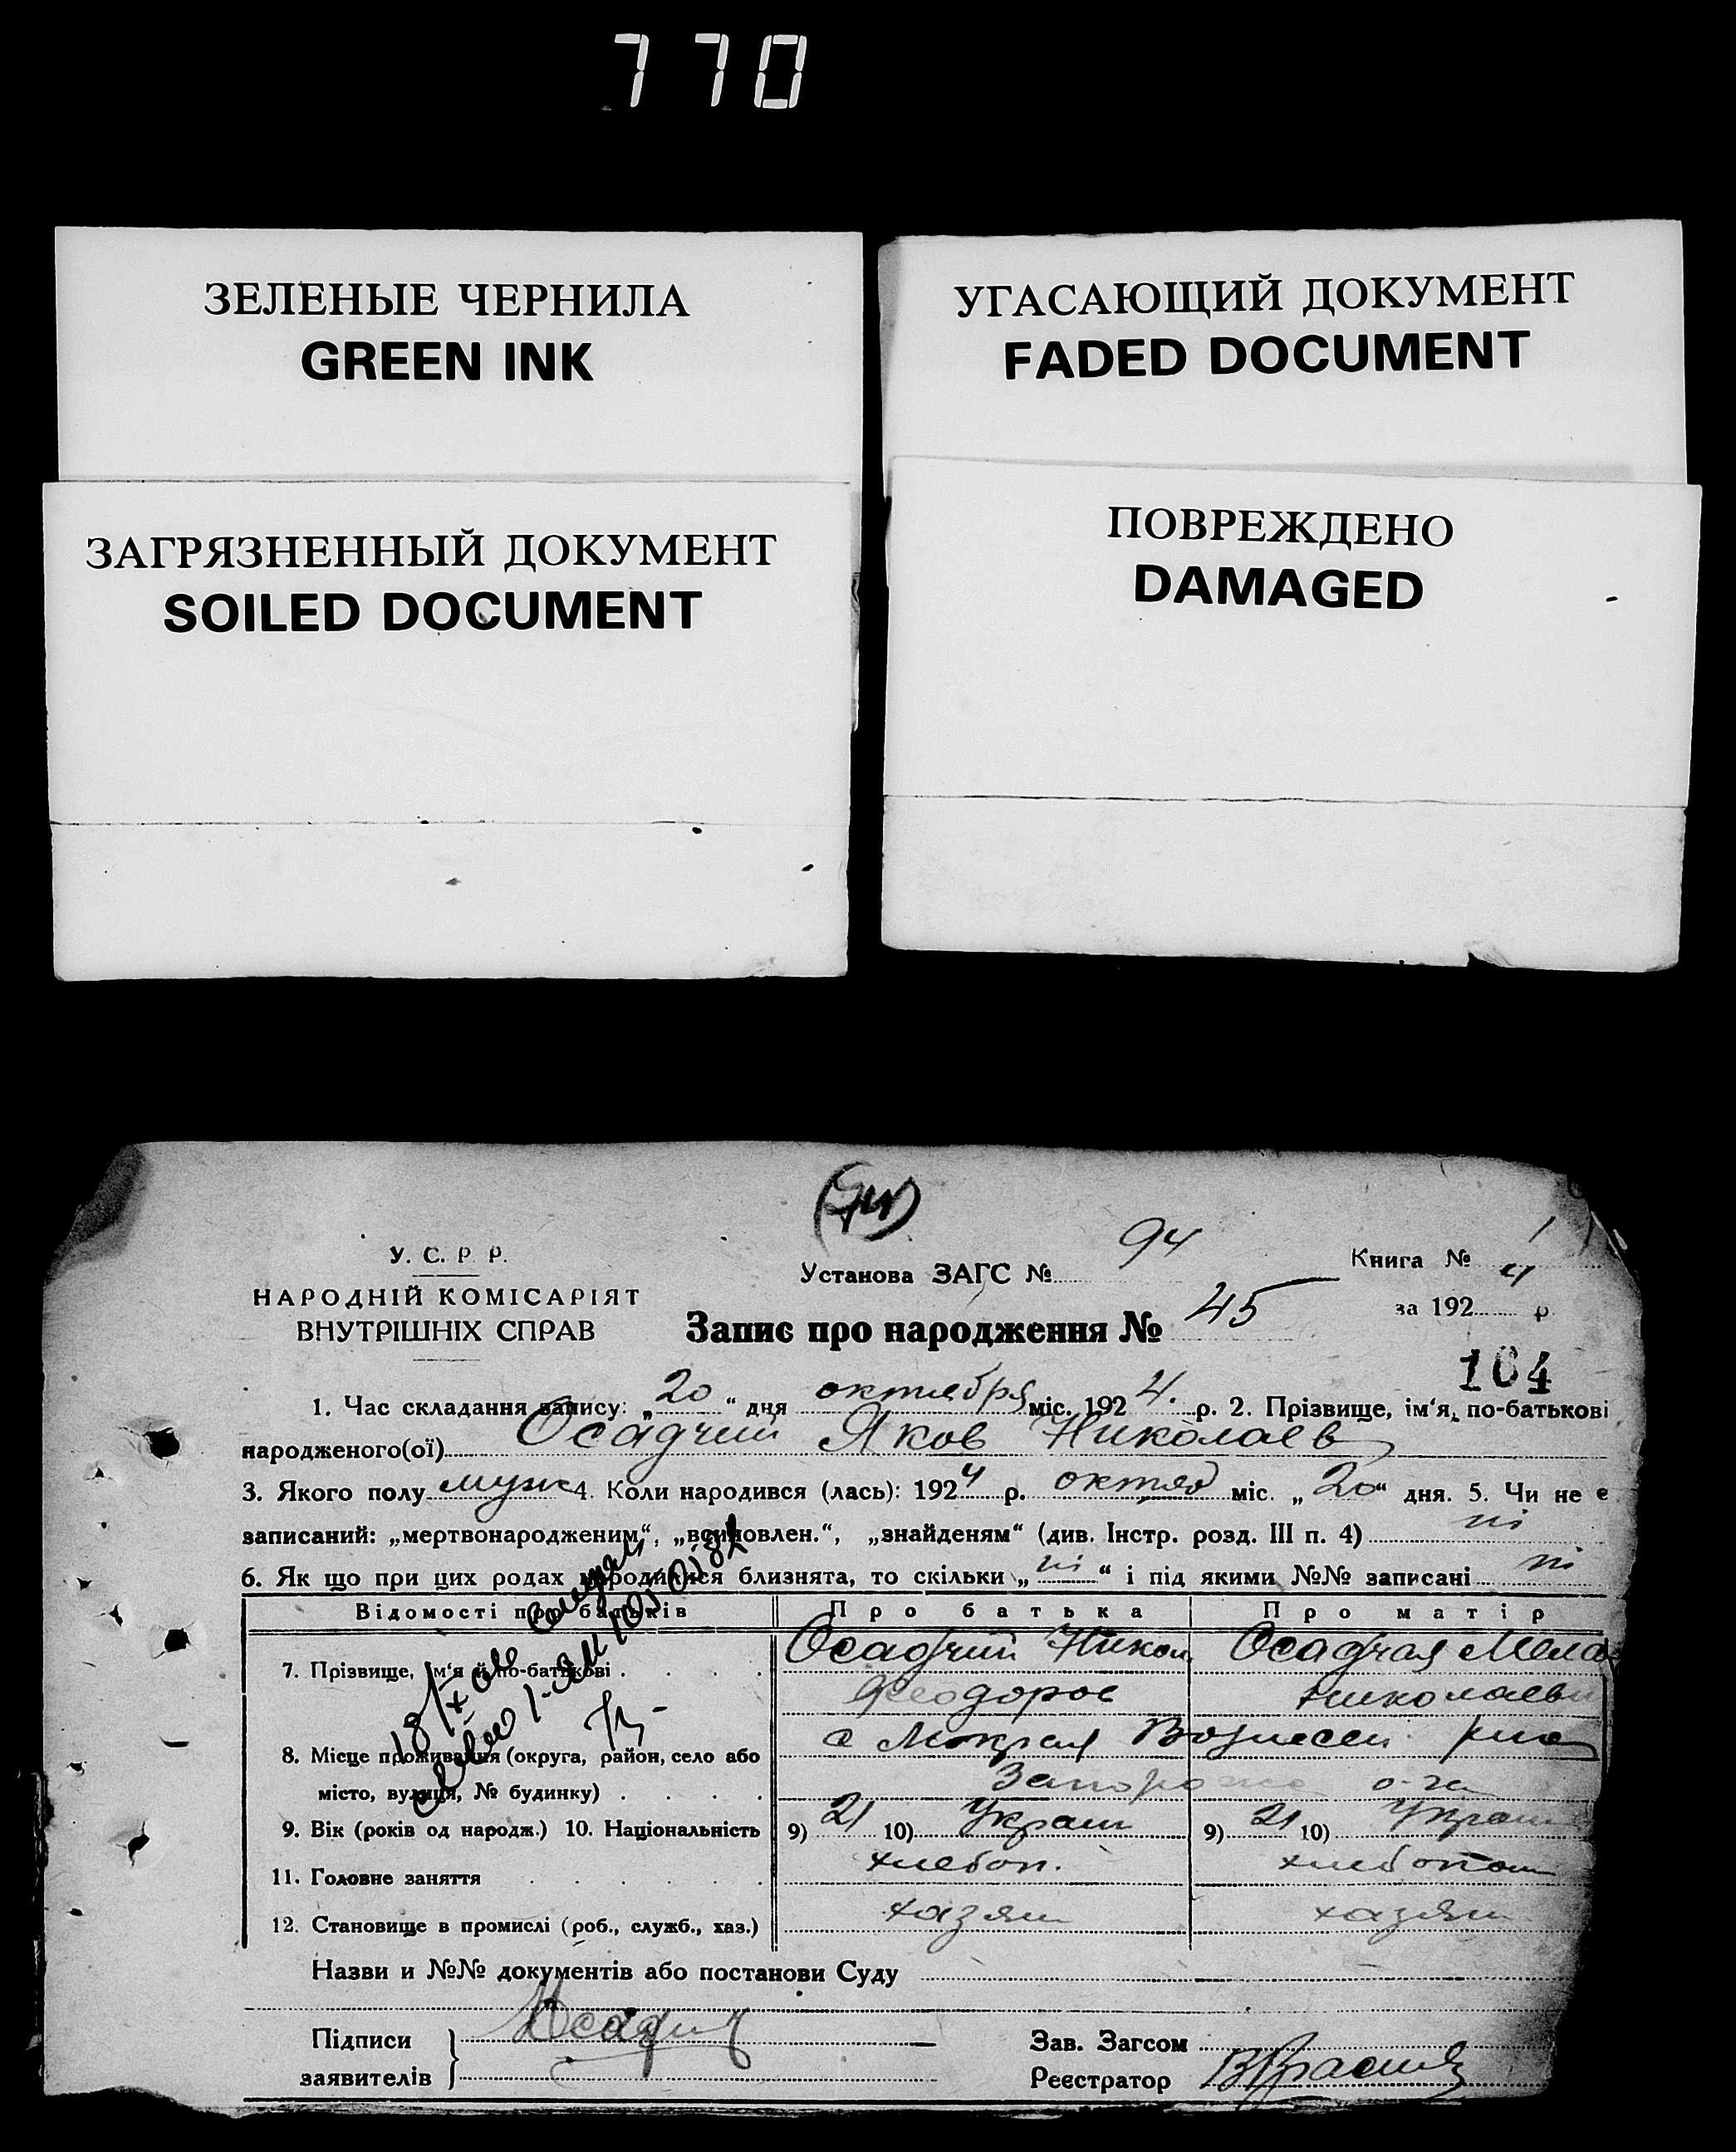 770
ЗЕЛЕНЫЕ ЧЕРНИЛА
GREEN INK
УГАСАЮЩИЙ ДОКУМЕНТ
FADED DOCUMENT
ЗАГРЯЗНЕННЫЙ ДОКУМЕНТ
SOILED DOCUMENT
ПОВРЕЖДЕНО
DAMAGED
У. С. Р. Р.
НАРОДНІЙ КОМІСАРІЯТ
ВНУТРІШНІХ СПРАВ
Установа ЗАГС № 94
Запис про народження № 45
Книга № 1
за 192 4 р.
164
1. Час складання запису: „20“ дня октября міс. 192 4. р. 2. Прізвище, ім‘я, по-батькові
народженого(ої) Осадчий Яков Николаев
3. Якого полу муж 4. Коли народився (лась): 192 4 р. октяб міс. „20“ дня. 5. Чи не є
записаний: „мертвонародженим“, „всиновлен.“, „знайденям“ (див. Інстр. розд. III п. 4) ні
6. Як що при цих родах народилися близнята, то скільки „ні“ і під якими №№ записані ні
Відомості про батьків Про батька Про матір
7. Прізвище, ім‘я й по-батькові Осадчий Никол Осадчая Мела
Феодоров Николаевн
8. Місце проживання (округа, район, село або а Мокрая Вознесен
місто, вулиця, № будинку) Запороже о-га
9. Вік (років од народж.) 10. Національність 9) 21 10) Украин 9) 21 10) Украин
11. Головне заняття хлебоп. хлебопаш
12. Становище в промислі (роб., служб., хаз.) хазяин хазяин
Назви и №№ документів або постанови Суду
Підписи
заявителів
Осадчий
Зав. Загсом
Реєстратор